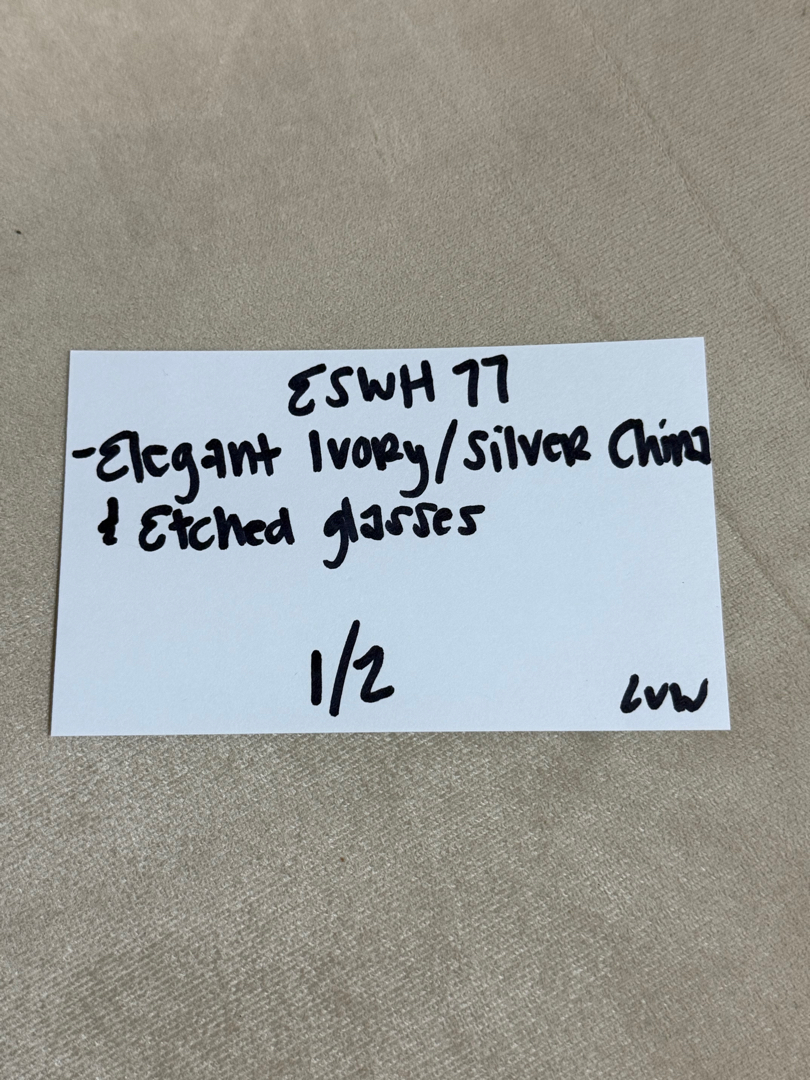 ESWH 77
-Elegant Ivory/Silver China
& Etched glasses
1/2
LVW